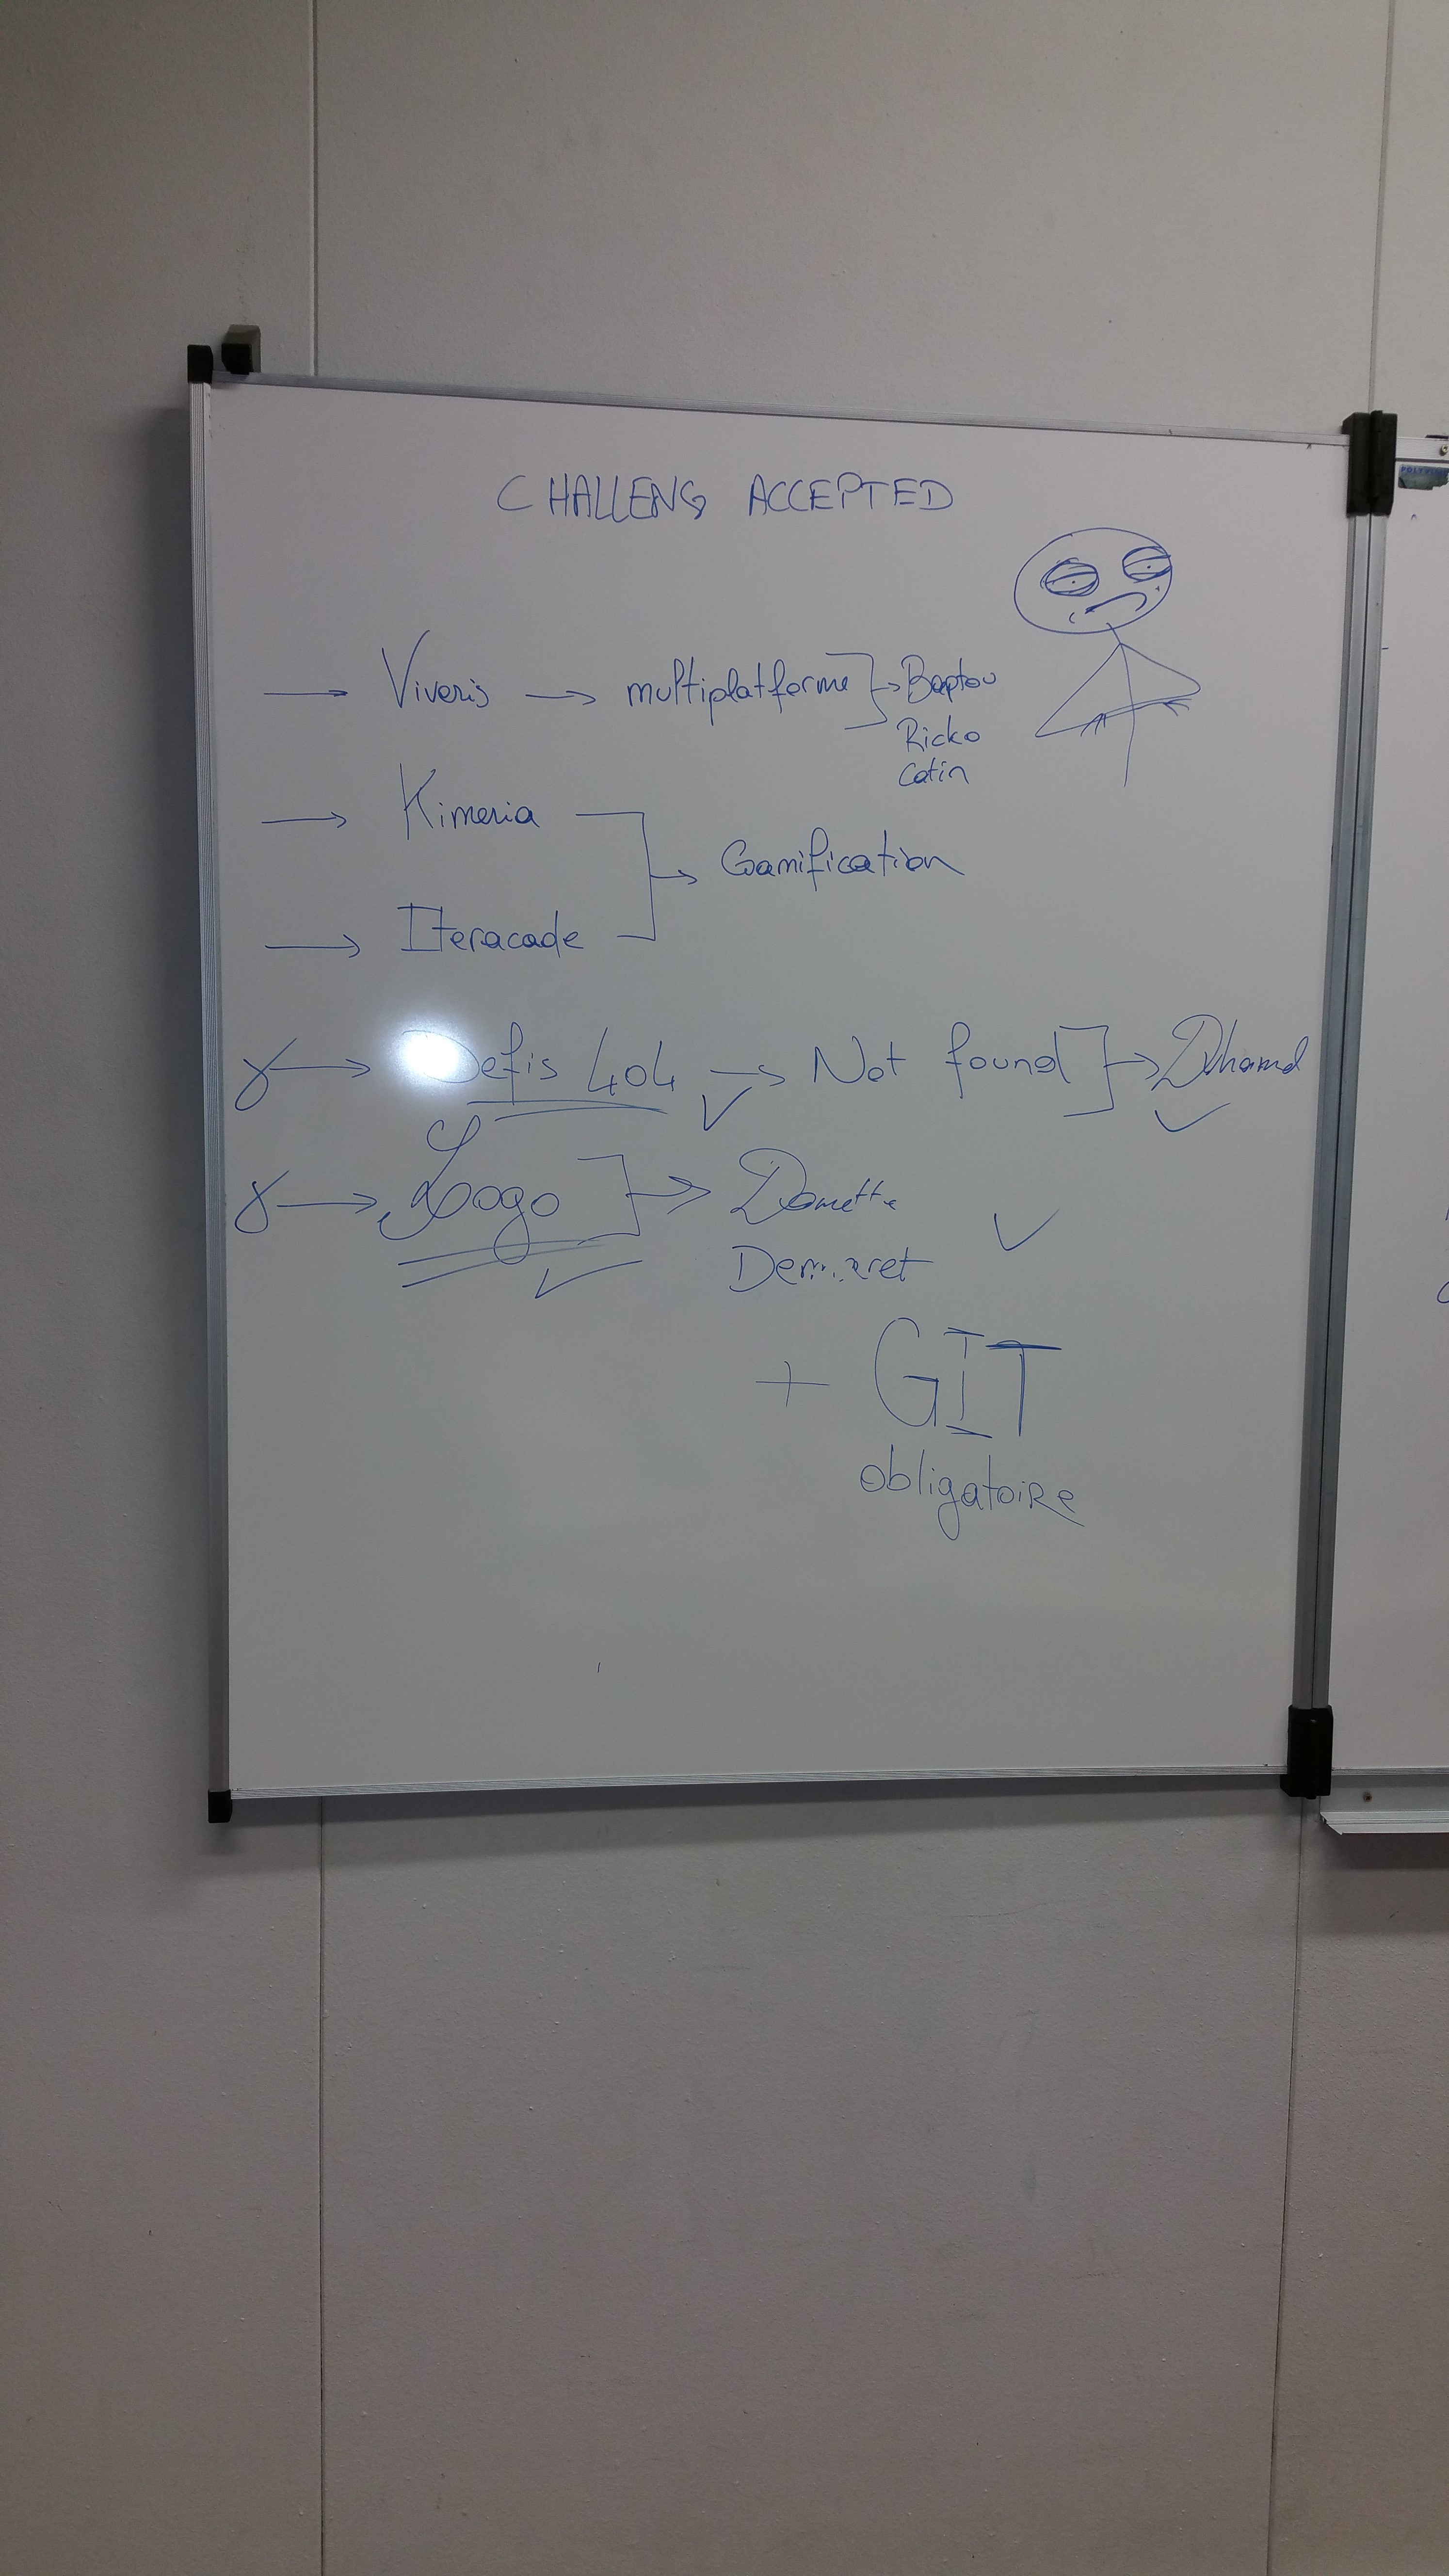 CHALLENG ACCEPTED
→ Viveris → multiplatforme ] → Baptou
Ricko
Catin
→ Kimeria
→ Gamification
→ Iteracode
→ Defis 404 → Not found ] → Dhamd
→ Logo ] → Domette
Demaret
+ GIT
obligatoire